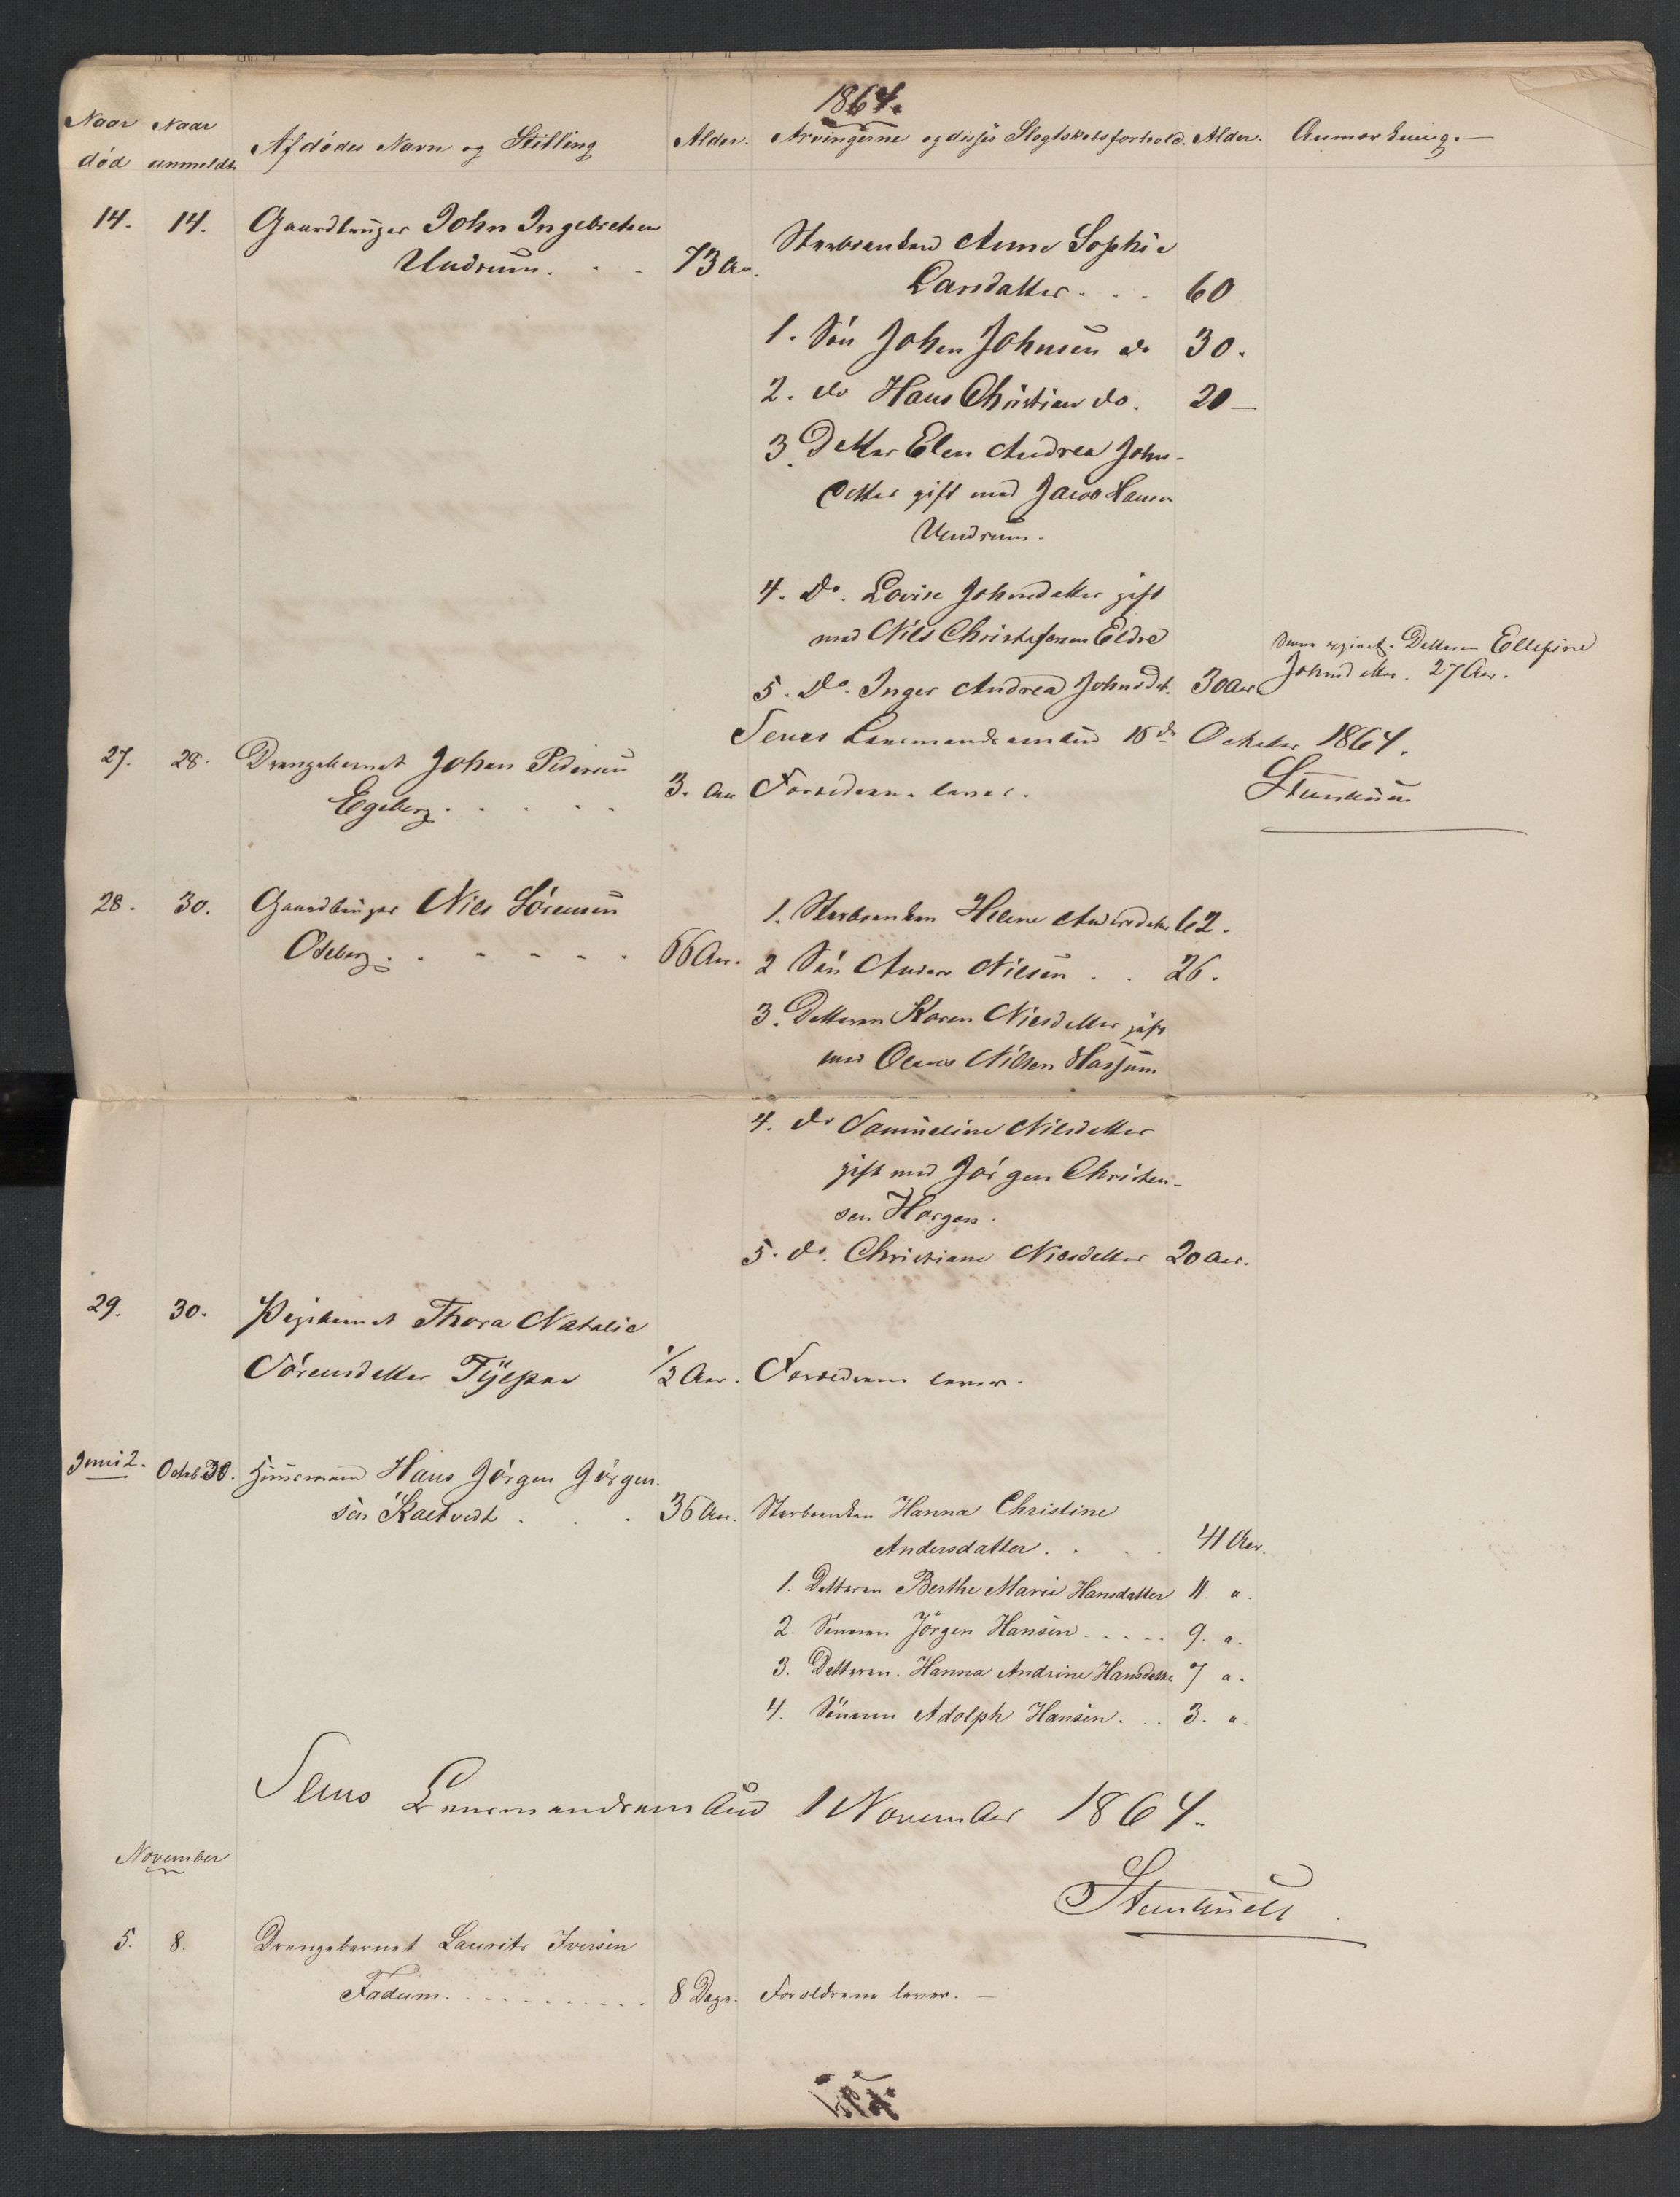 1864.
Naar død Naar anmeldt Afdødes Navn og Stilling Alder. Arvingerne og disses Slegtskabsforhold. Alder. Anmærkning.
14. 14. Gaardbruger John Ingebretsen
Undrum. . . 73 Aar.
Stervboenken Anne Sophie
Larsdatter . . . 60
1. Søn Johan Johnsen do 30.
2. do Hans Christian do. 20 —
3. Datter Elen Andrea John-
datter gift med Jacob Hansen
Undrum.
4. Do. Lovise Johnsdatter gift
med Nils Christofersen Eldre
5. Do. Inger Andrea Johnsdt. 30 Aar
Datteren Ellefine
Johnsdatter. 27 Aar.
Sems Lensmandsembed 15de October 1864.
27. 28. Drengebarnet Johan Pedersen
Egeberg . . . . . 3. Aar Forældrene lever.
28. 30. Gaardbruger Niels Sørensen
Odeberg . . - - - . 66 Aar.
1. Stervboenken Helene Andersdatter 62.
2 Søn Anders Nielsen . . 26.
3. Datteren Karen Nielsdatter gift
med Olaus Nilsen Hassum
4. do Samueline Nielsdatter
gift med Jørgen Christen-
sen Horgen.
5. do. Christiane Nielsdatter 20 Aar.
29. 30. Pigebarnet Thora Natalie
Sørensdatter 1/2 Aar. Forældrene lever.
Juni 2. Octob. 30. Huusmand Hans Jørgen Jørgen-
sen . . . 36 Aar.
Stervboenken Hanna Christine
Andersdatter . . . . 41 Aar.
1. Datteren Berthe Marie Hansdatter 11. a.
2. Sønnen Jörgen Hansen . . . . . 9. a.
3. Datteren. Hanna Andrine Hansdatter 7 a.
4. Sönnen Adolph Hansen . . . 3. a.
Sems Lensmandsembed 1 November 1864.
November
5. 8. Drengebarnet Laurits Iversen
Fadum. . . . . . . . . . . 8 Dage. Forældrene lever. —